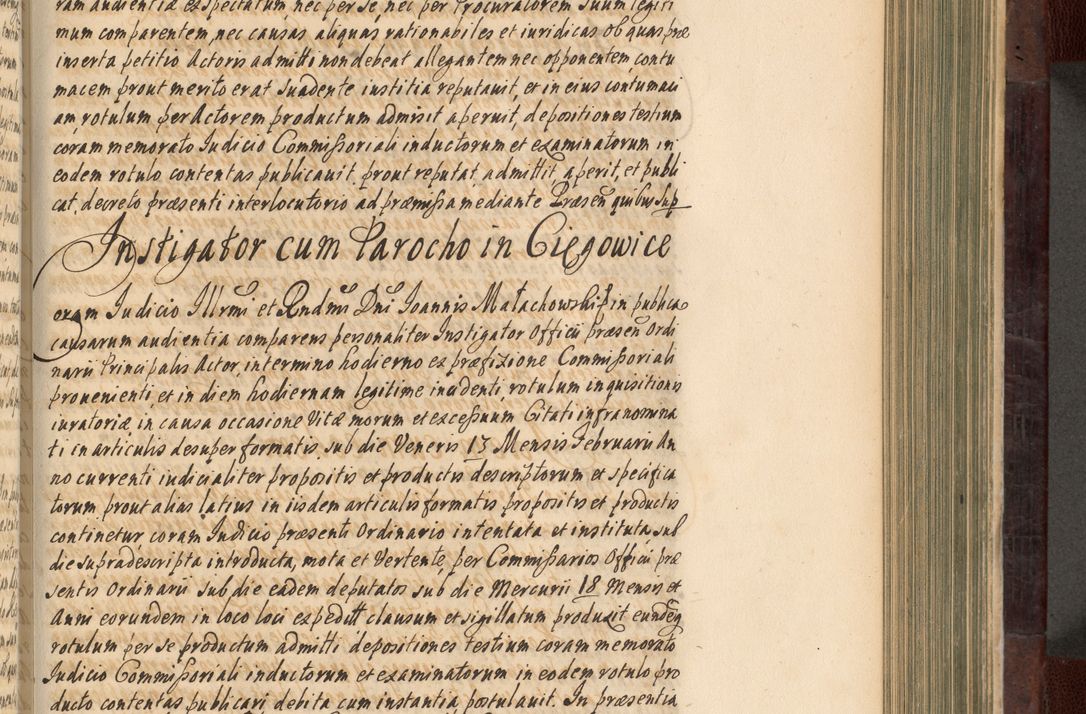 ram audientiæ exspectatum, nec per se, nec per Procuratorem suum legiti
mum comparentem, nec causas aliquas rationabiles et iuridicas ob quas præ
inserta petitio Actoris admitti non debeat allegantem nec opponentem, contu
macem prout merito erat suadente iustitia reputauit, et in eius contumaci
am, rotulum per Actorem productum admisit aperuit, depositiones testium
coram memorato Iudicio Commißoriali inductorum et examinatorum in
eodem rotulo contentas publicauit, prout reputat, admittit, aperit, et publi
cat, decreto præsenti interlocutorio ad præmißa mediante Præsen quibus sup
Instigator cum Parocho in Cięgowice
oram Iudicio Illrmi et Rndmi Dni Ioannis Małachowski in publica
causarum audientia comparens personaliter Instigator Officii præsen Ordi
narii Principalis Actor, in termino hodierno ex præfixione Commißoriali
proueniente, et in diem hodiernam legitime incidenti, rotulum inquisitionis
iuratoriæ in causa occasione Vitæ morum et exceßuum Citati infranomina
ti in articulis desuper formatis, sub die Veneris 13 Mensis Februarii An
no currenti iudicialiter propositis et productis descriptorum et specifica
torum prout alias latius in iisdem articulis formatis propositis et productis
continetur, coram Iudicio præsenti Ordinario intentata et instituta, sub
die supradescripta introducta, mota et Vertente, per Commißarios Officii præ
sentis Ordinarii sub die eadem deputatos sub die Mercurii 18 Mensis et
Anni eorundem in loco loci expeditt clausum et sigillatum produxit eundeq
rotulum per se productum admitti depositiones testium coram memorato
Iudicio Commißoriali inductorum et examinatorum in eodem rotulo pro
ducto contentas publicari debita cum instantia postulauit. In præsentia